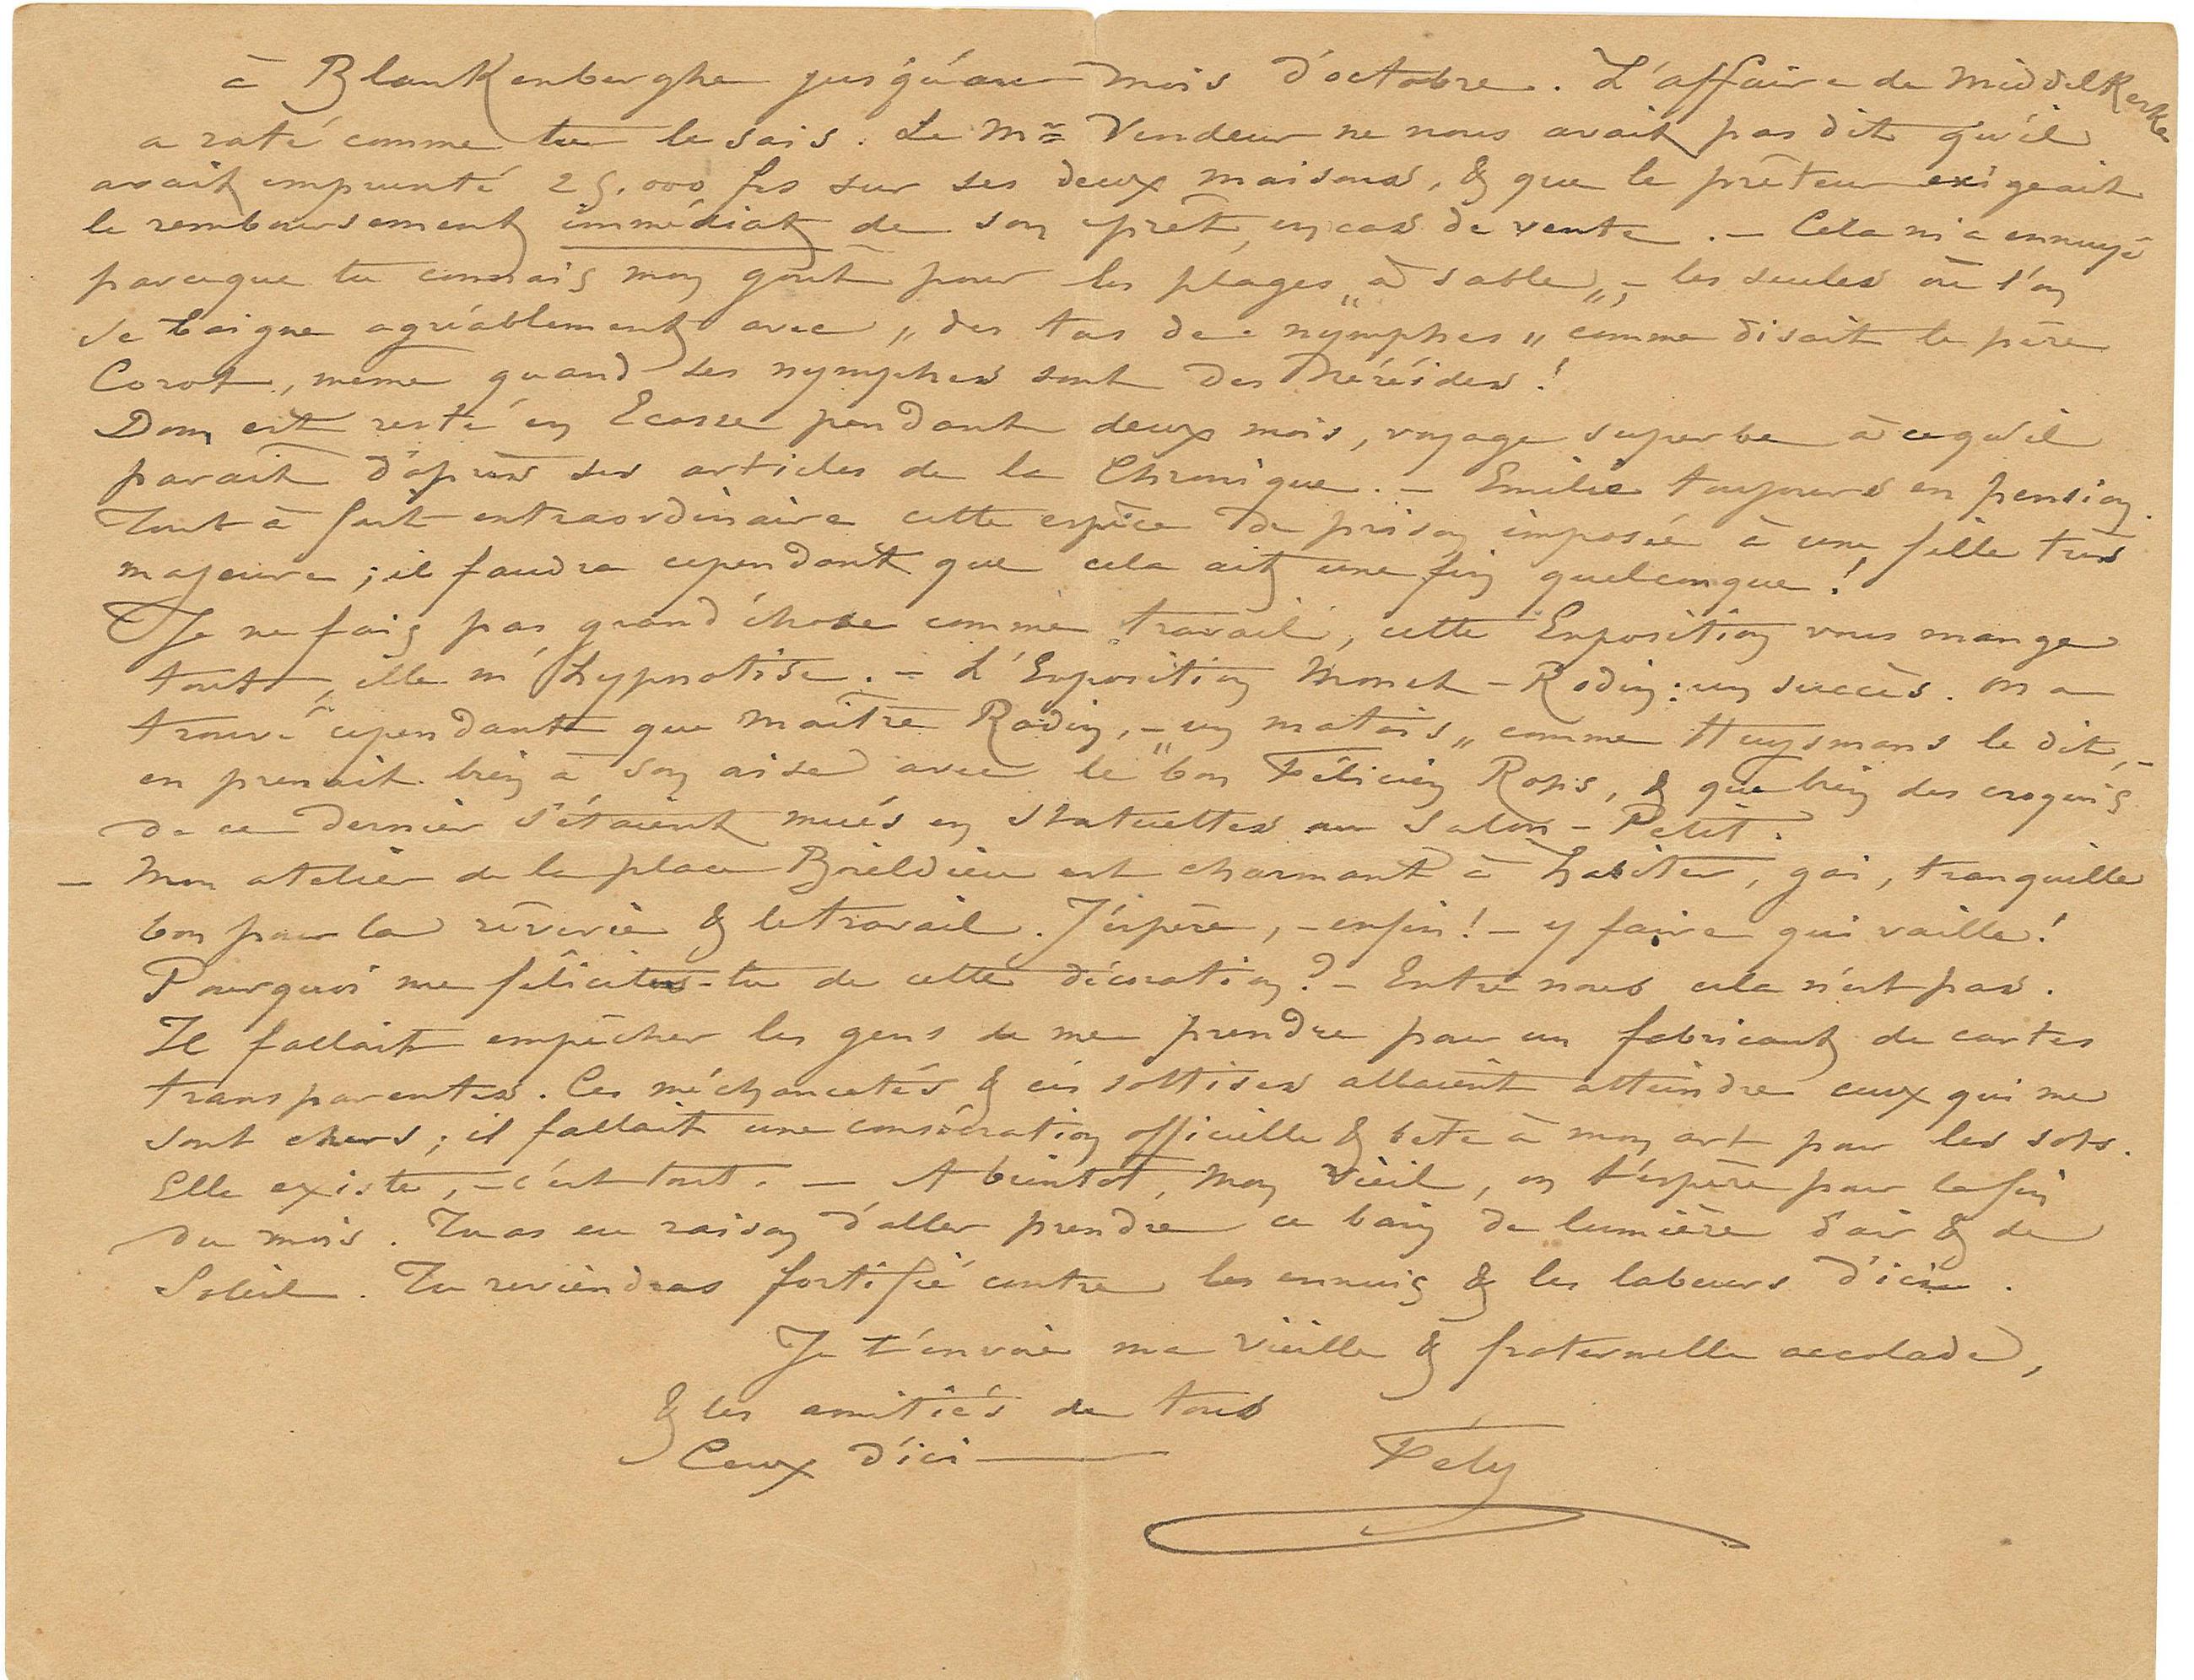 à Blankenberghe jusqu'au mois d'octobre. L'affaire de Middelkerke
a raté comme tu le sais. Le Mr Vendeur ne nous avait pas dit qu'il
avait emprunté 25.000 frs sur ses deux maisons, & que le prêteur exigeait
le remboursement immédiat de son prêt, en cas de vente. – Cela m'a ennuyé
parceque tu connais mon goût pour les plages „à sable„, – les seules où l'on
se baigne agréablement avec „des tas de nymphes„ comme disait le père
Corot, même quand ses nymphes sont des Néréides!
Dom est resté en Ecosse pendant deux mois, voyage superbe à ce qu'il
parait d'après ses articles de la Chronique. – Emilie toujours en pension.
Tout à fait extraordinaire cette espèce de prison imposée à une fille très
majeure; il faudra cependant que cela ait une fin quelconque!
Je ne fais pas grand'chose comme travail, cette Exposition vous mange
tout, elle m'hypnotise. – L'Exposition Monet – Rodin: un succès. On a
trouvé cependant que maître Rodin, – „un matois„ comme Huysmans le dit, –
en prenait bien à son aise avec le bon Félicien Rops, & que bien des croquis
de ce dernier s'étaient mués en statuettes au Salon – Petit.
– Mon atelier de la place Boïeldieu est charmant à habiter, gai, tranquille
bon pour la rêverie & le travail. J'espère, – enfin! – y faire qui vaille!
Pourquoi me félicites-tu de cette décoration? – Entre nous cela n'est pas.
Il fallait empêcher les gens de me prendre pour un fabricant de cartes
transparentes. Ces méchancetés & ces sottises allaient atteindre ceux qui me
sont chers; il fallait une consécration officielle & bête à mon art pour les sots.
Elle existe, – c'est tout. – A bientôt, mon vieil, on t'espère pour la fin
du mois. Tu as eu raison d'aller prendre ce bain de lumière d'air & de
Soleil. Tu reviendras fortifié contre les ennuis & les labeurs d'ici.
Je t'envoie ma vieille & fraternelle accolade,
& les amitiés de tous
Ceux d'ici
Fély